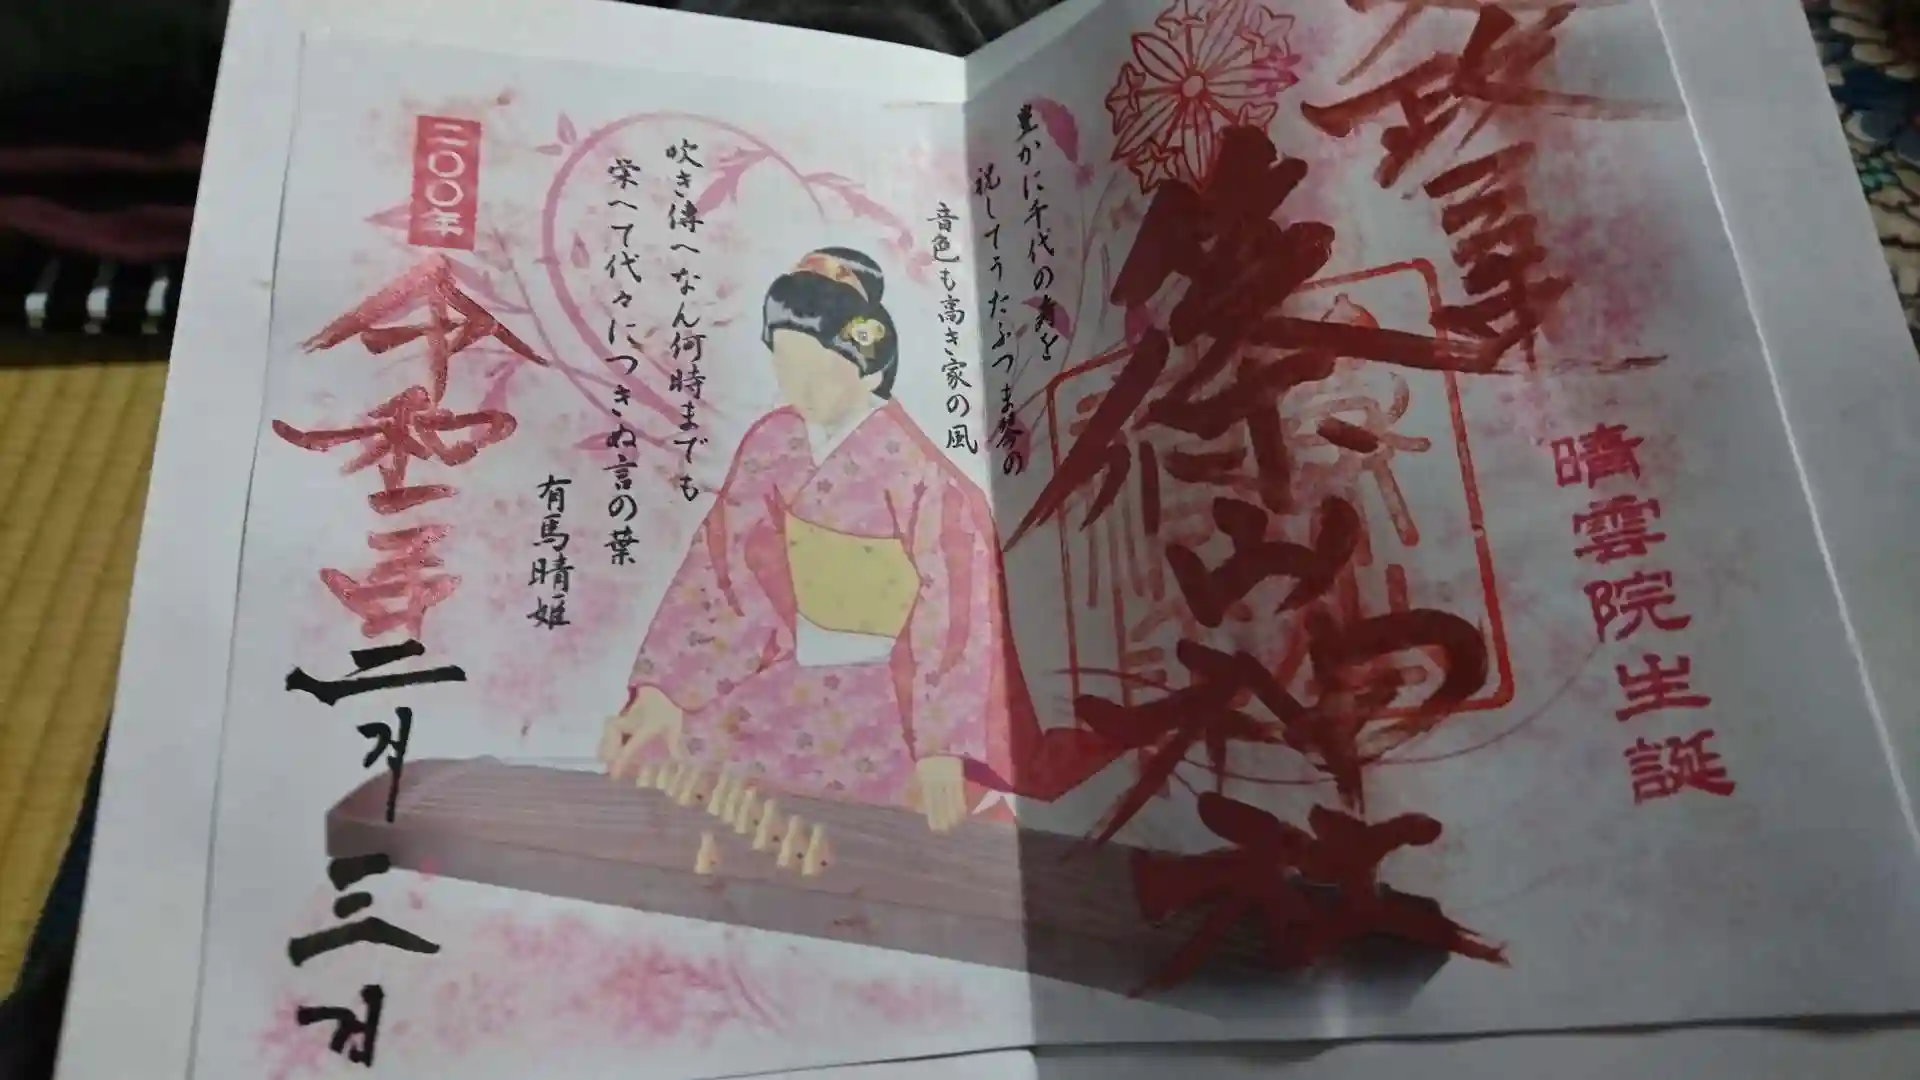 晴雲院生誕
篠山神社
豊かに千代の寿を
祝してうたふつま琴の
音色も高き家の風
吹き傳へなん何時までも
栄へて代々につきぬ言の葉
有馬晴姫
二〇〇年
令和
二月三日